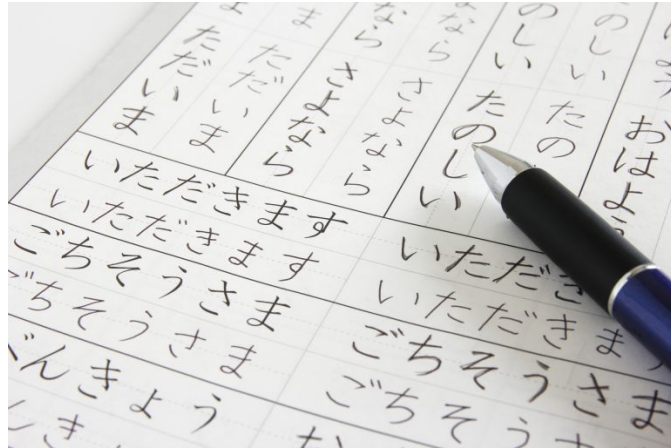 おはよう
のしい
たの
のしい
たのしい
よなら
さよなら
なら
さよなら
ま
ただいま
ただいま
いただきます
いただき
いただきます
いただきま
ごちそうさま
ごちそうさま
ごちそうさま
ごちそうさ
べんきょう
んきょ